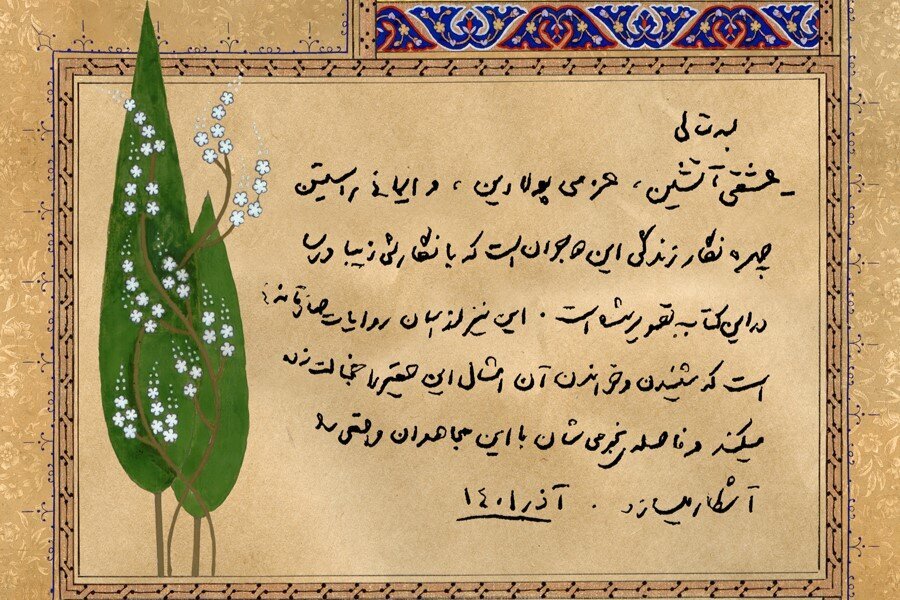 بسمه تعالی
عشقی آتشین، عزمی پولادین، و ایمانی راستین
چهره نگار زندگی این جوان است که با نگارشی زیبا و رسا
در این کتاب تصویر شده است. این نیز روایات صادقانه‌ئی
است که شنیدن و خواندن آن امثال این حقیر را خجالت زده
میکند و فاصله‌ی نجومی شان با این مجاهدان واقعی را
آشکار میسازد. آذر ۱۴۰۱